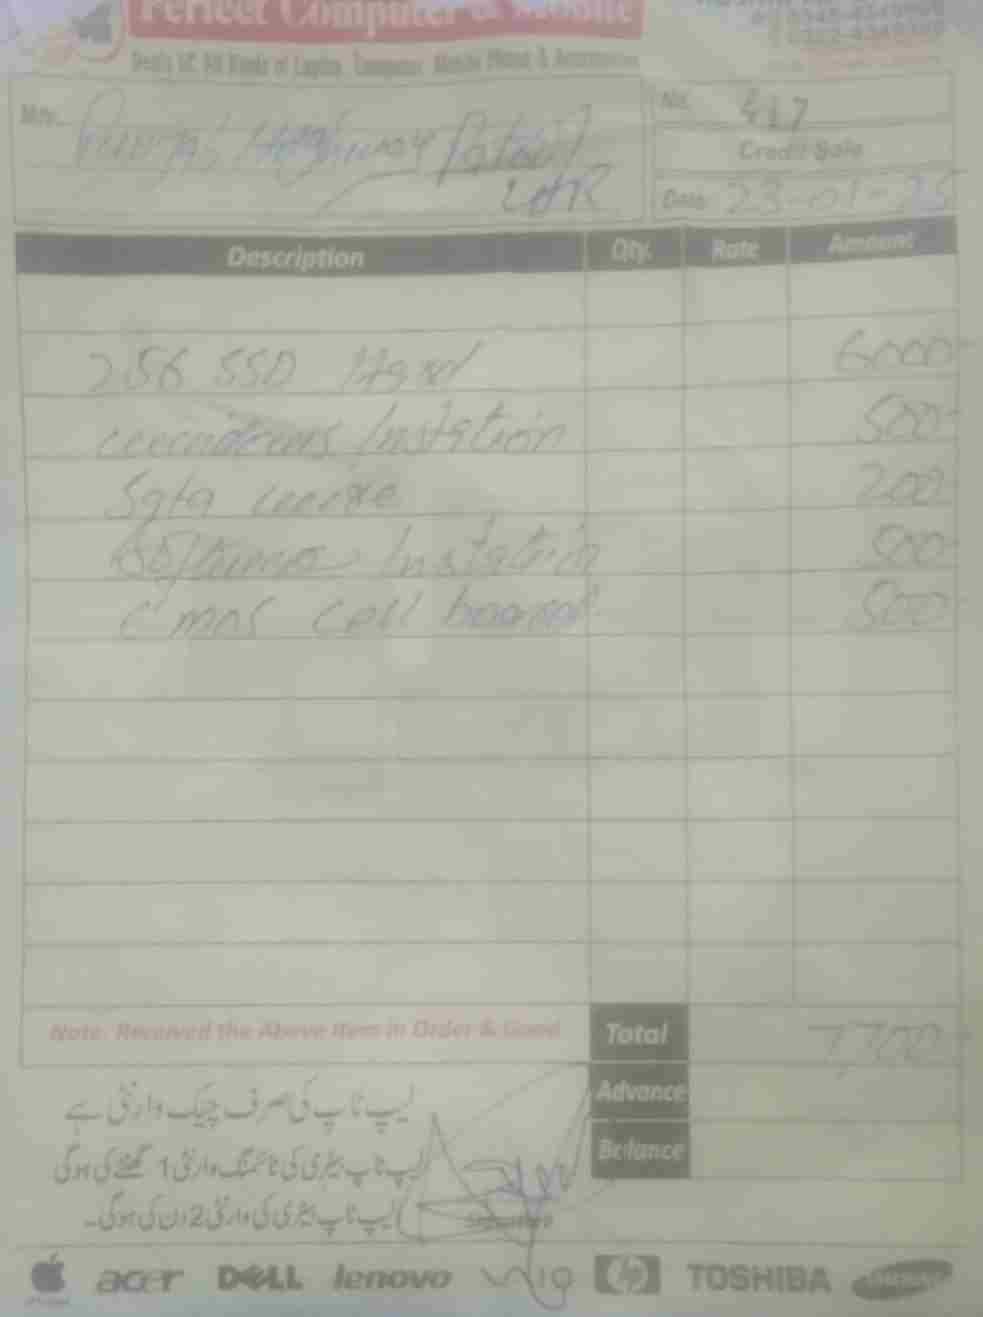 Perfect Computer & Mobile
Deals of All Kinds of Laptop, Computer, Mobile Phone & Accessories
M/s. Punjab Highway Patrol
LHR
No. 417
Credit Sale
Date 23-01-25
Description Qty. Rate Amount
256 SSD Hard 6000-
Instation 500-
Sata 200-
Instation 500-
C mos Cell board 500-
Note: Received the Above Item in Order & Good
Total 7700-
Advance
Balance
لیپ ٹاپ کی صرف چیک وارنٹی ہے
لیپ ٹاپ بیٹری کی ٹائمنگ وارنٹی 1 گھنٹے کی ہوگی
لیپ ٹاپ بیٹری کی وارنٹی 2 دن کی ہوگی۔
Signature
acer DELL lenovo VAIO hp TOSHIBA SAMSUNG